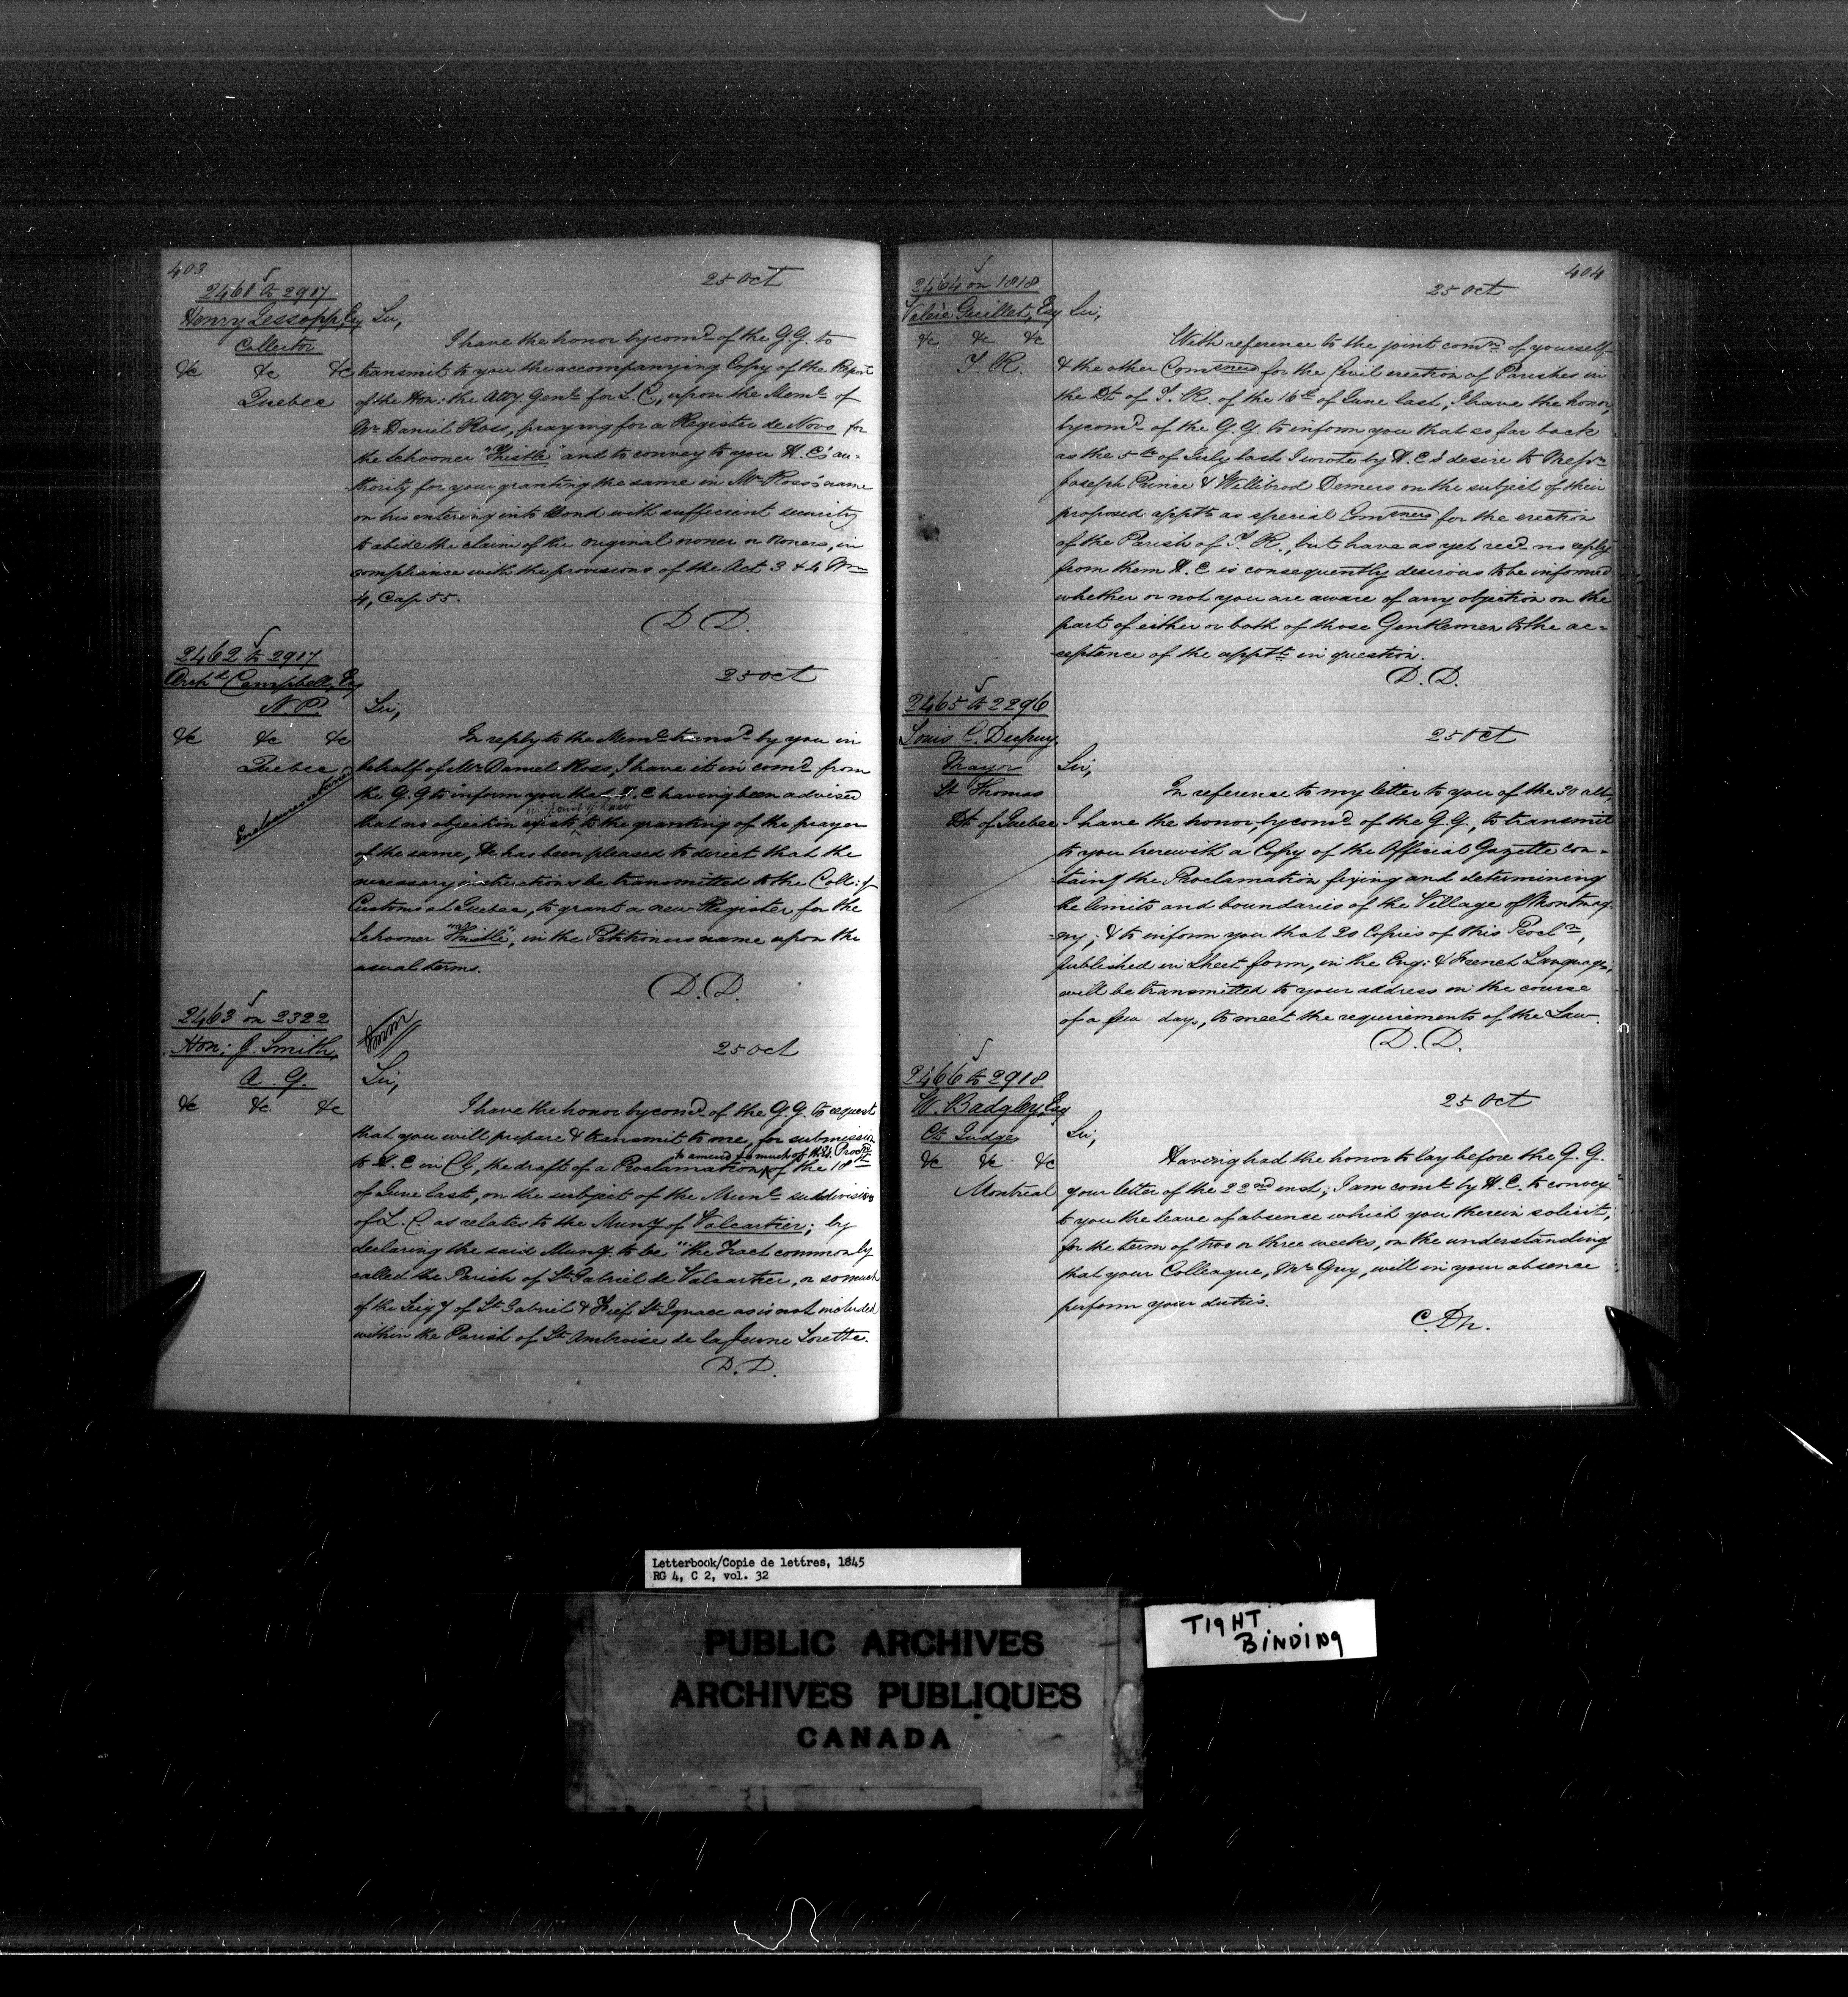 403
25 Oct
2461 to 2917
Henry Jessopp, Esq
Collector
&c &c &c
Quebec
Sir,
I have the honor by comd. of the G.G. to
transmit to you the accompanying Copy of the Report
of the Hon: the Atty. Genl. for L.C., upon the Meml. of
Mr. Daniel Ross, praying for a Register de Novo for
the Schooner "Thistle" and to convey to you H.E's au=
thority for your granting the same in Mr. Ross's name
on his entering into Bond with sufficient security
to abide the claim of the original owner or owners, in
compliance with the provisions of the Act 3 & 4 Wm
4, Cap 55.
D D.
2462 to 2917
Archd. Campbell, Esq
N.P.
&c &c &c
Quebec
25 Oct
Sir,
In reply to the Meml. transd. by you in
behalf of Mr. Daniel Ross, I have it in comd. from
the G.G. to inform you that H.E having been advised
in point of law
that no objection exists to the granting of the prayer
of the same, He has been pleased to direct that the
necessary instructions be transmitted to the Coll: of
Customs at Quebec, to grant a new Register for the
Schooner "Thistle", in the Petitioners name upon the
usual terms.
D.D.
2463 on 2322
Hon: J. Smith,
A. G.
&c &c &c
25 Oct
Sir,
I have the honor by comd. of the G.G. to request
that you will prepare & transmit to me, for submission
to amend so much of the Procln
to H.E in Cl, the draft of a Proclamation of the 18th
of June last, on the subject of the Munl. subdivision
of L.C. as relates to the Muny of Valcartier; by
declaring the said Muny. to be "the Tract commonly
called the Parish of St. Gabriel de Valcartier, or so much
of the Seigy of St. Gabriel & Fief St. Ignace as is not included
within the Parish of St. Ambroise de la Jeune Lorette.
D.D.
404
25 Oct
2464 on 1818
Valère Guillet, Esq
&c &c &c
T. R.
Sir,
With reference to the joint comn. of yourself
& the other Comsners for the Civil erection of Parishes in
the Dt. of T.R. of the 16th of June last, I have the honor,
by comd. of the G.G. to inform you that so far back
as the 5th of July last I wrote by H.E's desire to Messrs
Joseph Prince & Willibrod Demers on the subject of their
proposed appts as special Comsners for the erection
of the Parish of T.R., but have as yet recd. no reply
from them H.E is consequently desirous to be informed
whether or not you are aware of any objection on the
part of either or both of those Gentlemen to the ac=
ceptance of the apptt. in question.
D.D.
2465 to 2296
Louis C. Dupuy,
Mayor
St Thomas
Dt. of Quebec
25 Oct
Sir,
In reference to my letter to you of the 30 ult,
I have the honor, by comd. of the G.G., to transmit
to you herewith a Copy of the Official Gazette con=
taing the Proclamation fixing and determining
the limits and boundaries of the Village of Montmag=
=ny; & to inform you that 20 Copies of this Procln,
published in Sheet form, in the Eng: & French Languags,
will be transmitted to your address in the course
of a few days, to meet the requirements of the Law.
D.D.
2466 to 2918
W. Badgley, Esq
Ct. Judge
&c &c &c
Montreal
25 Oct
Sir,
Having had the honor to lay before the G.G.
your letter of the 22nd inst; I am comd. by H.E. to convey
to you the leave of absence which you therein solicit,
for the term of two or three weeks, on the understanding
that your Colleague, Mr. Guy, will in your absence
perform your duties.
Letterbook/Copie de lettres, 1845
RG 4, C 2, vol. 32
PUBLIC ARCHIVES
ARCHIVES PUBLIQUES
CANADA
TIGHT
BINDING